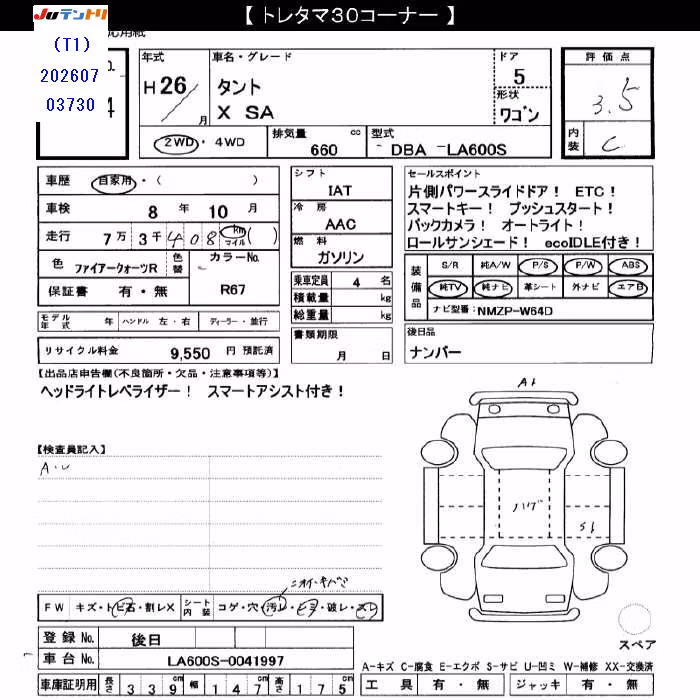 【 トレタマ30コーナー 】
JUテントリ
(T1)
202607
03730
4
年式
H 26/ 月
車名・グレード
タント
X SA
ドア
5
形状
ワゴン
評価点
3.5
内装
C
2WD・4WD
排気量 660 cc
型式
DBA - LA600S
車歴 自家用・( )
車検 8 年 10 月
走行 7万 3千 408 km マイル ( )
色 ファイアークォーツR 色替
カラーNo. R67
保証書 有・無
シフト
IAT
冷房
AAC
燃料
ガソリン
乗車定員 4 名
積載量 kg
総重量 kg
セールスポイント
片側パワースライドドア! ETC!
スマートキー! プッシュスタート!
バックカメラ! オートライト!
ロールサンシェード! ecoIDLE付き!
装備品
S/R 純A/W P/S P/W ABS
純TV 純ナビ 革シート 外ナビ エアB
ナビ型番:NMZP-W64D
モデル年式 年 ハンドル 左・右 ディーラー・並行
リサイクル料金 9,550 円 預託済
書類期限
月 日
後日品
ナンバー
【出品店申告欄(不良箇所・欠品・注意事項等)】
ヘッドライトレベライザー! スマートアシスト付き!
【検査員記入】
A・U
A1
ハゲ
S1
ニオイ・キバミ
FW キズ・トビ石・割レX シート内装 コゲ・穴・汚レ・ヒビ・破レ・スレ
スペア
登録No. 後日
車台No. LA600S-0041997
A-キズ C-腐食 E-エクボ S-サビ U-凹ミ W-補修 XX-交換済
車庫証明用 長さ 339 cm 幅 147 cm 高さ 175 cm
工具 有・無 ジャッキ 有・無